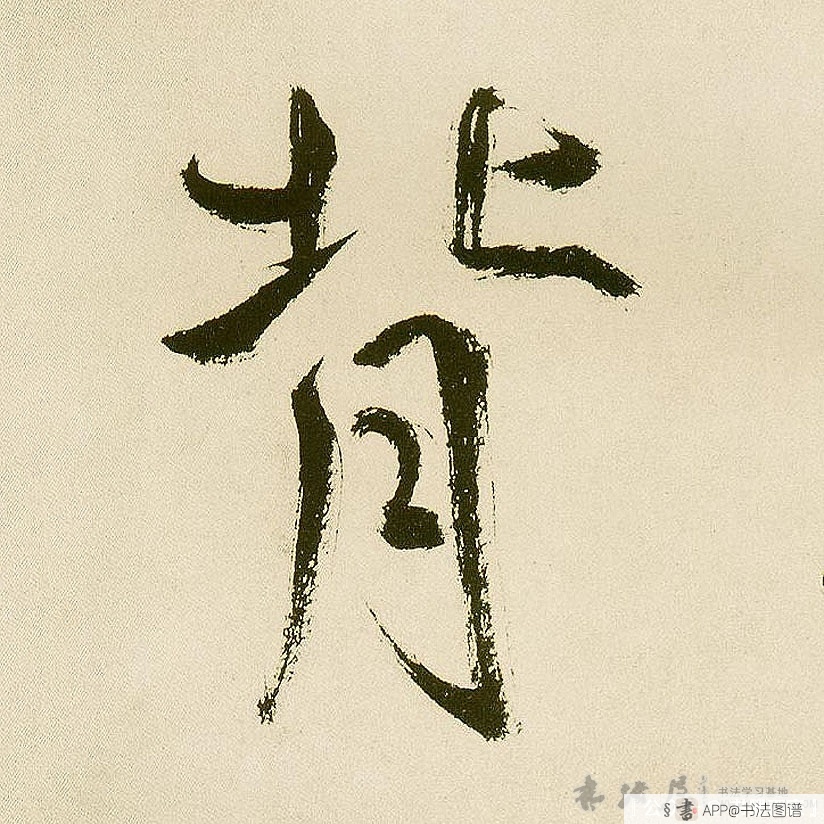 背
书法学习基地
书 APP@书法图谱